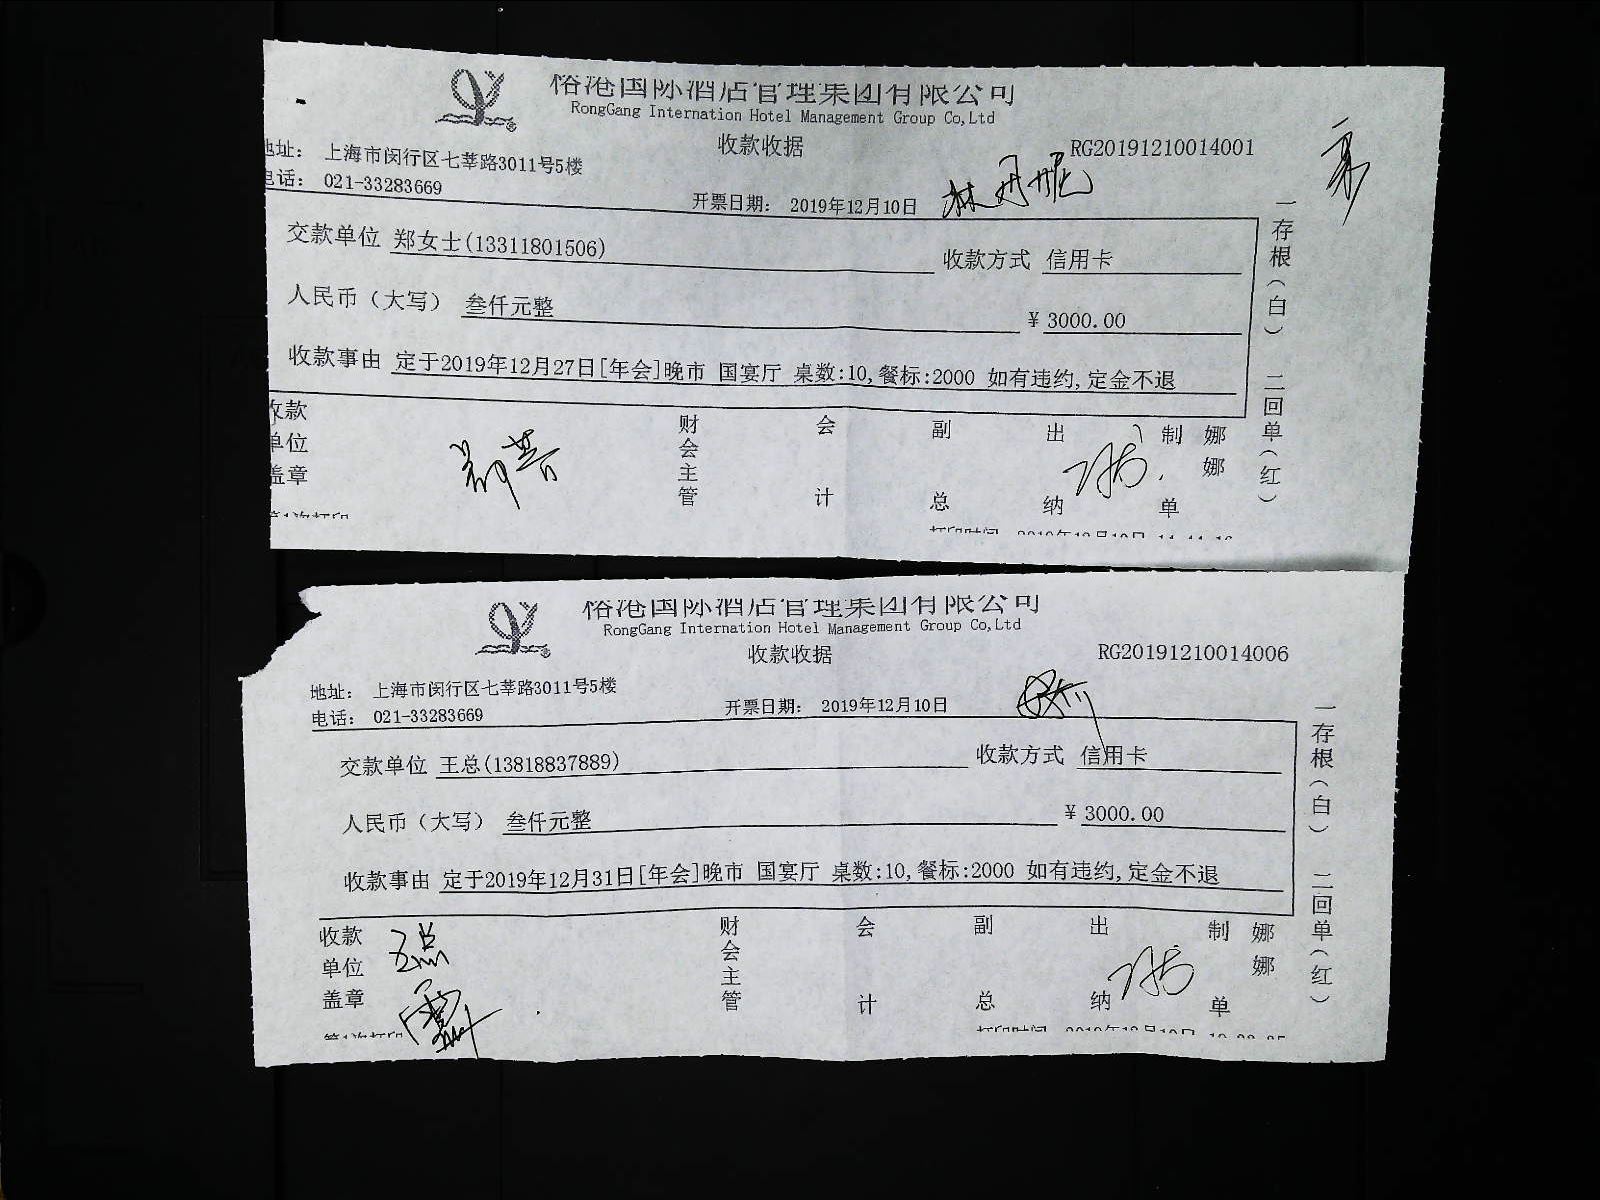 榕港国际酒店管理集团有限公司
RongGang International Hotel Management Group Co,Ltd
收款收据
RG20191210014001
地址： 上海市闵行区七莘路3011号5楼
电话： 021-33283669
开票日期： 2019年12月10日
交款单位 郑女士(13311801506)
收款方式 信用卡
人民币（大写） 叁仟元整
¥ 3000.00
收款事由 定于2019年12月27日[年会]晚市 国宴厅 桌数:10,餐标:2000 如有违约,定金不退
一存根（白） 二回单（红）
收款单位盖章
财会主管
会计
副总
出纳
制单
娜娜
第1次打印
打印时间 2019年12月10日
榕港国际酒店管理集团有限公司
RongGang International Hotel Management Group Co,Ltd
收款收据
RG20191210014006
地址： 上海市闵行区七莘路3011号5楼
电话： 021-33283669
开票日期： 2019年12月10日
交款单位 王总(13818837889)
收款方式 信用卡
人民币（大写） 叁仟元整
¥ 3000.00
收款事由 定于2019年12月31日[年会]晚市 国宴厅 桌数:10,餐标:2000 如有违约,定金不退
一存根（白） 二回单（红）
收款单位盖章
王总
财会主管
会计
副总
出纳
制单
娜娜
第1次打印
打印时间 2019年12月10日